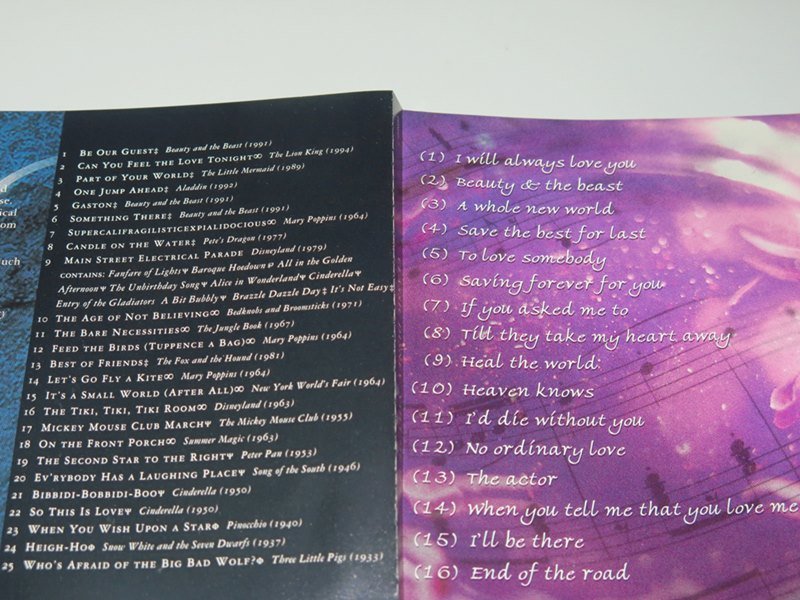 d
se,
ical
om
uch
y
1 BE OUR GUEST‡ Beauty and the Beast (1991)
2 CAN YOU FEEL THE LOVE TONIGHT∞ The Lion King (1994)
3 PART OF YOUR WORLD‡ The Little Mermaid (1989)
4 ONE JUMP AHEAD‡ Aladdin (1992)
5 GASTON‡ Beauty and the Beast (1991)
6 SOMETHING THERE‡ Beauty and the Beast (1991)
7 SUPERCALIFRAGILISTICEXPIALIDOCIOUS∞ Mary Poppins (1964)
8 CANDLE ON THE WATER‡ Pete's Dragon (1977)
9 MAIN STREET ELECTRICAL PARADE Disneyland (1979)
CONTAINS: Fanfare of LightsΨ Baroque HoedownΨ All in the Golden
AfternoonΨ The Unbirthday SongΨ Alice in WonderlandΨ CinderellaΨ
Entry of the Gladiators A Bit BubblyΨ Brazzle Dazzle Day‡ It's Not Easy‡
10 THE AGE OF NOT BELIEVING∞ Bedknobs and Broomsticks (1971)
11 THE BARE NECESSITIES∞ The Jungle Book (1967)
12 FEED THE BIRDS (TUPPENCE A BAG)∞ Mary Poppins (1964)
13 BEST OF FRIENDS‡ The Fox and the Hound (1981)
14 LET'S GO FLY A KITE∞ Mary Poppins (1964)
15 IT'S A SMALL WORLD (AFTER ALL)∞ New York World's Fair (1964)
16 THE TIKI, TIKI, TIKI ROOM∞ Disneyland (1963)
17 MICKEY MOUSE CLUB MARCHΨ The Mickey Mouse Club (1955)
18 ON THE FRONT PORCH∞ Summer Magic (1963)
19 THE SECOND STAR TO THE RIGHTΨ Peter Pan (1953)
20 EV'RYBODY HAS A LAUGHING PLACEΨ Song of the South (1946)
21 BIBBIDI-BOBBIDI-BOOΨ Cinderella (1950)
22 SO THIS IS LOVEΨ Cinderella (1950)
23 WHEN YOU WISH UPON A STARΦ Pinocchio (1940)
24 HEIGH-HOΦ Snow White and the Seven Dwarfs (1937)
25 WHO'S AFRAID OF THE BIG BAD WOLF?Φ Three Little Pigs (1933)
(1) I will always love you
(2) Beauty & the beast
(3) A whole new world
(4) Save the best for last
(5) To love somebody
(6) Saving forever for you
(7) If you asked me to
(8) Till they take my heart away
(9) Heal the world:
(10) Heaven knows
(11) I'd die without you
(12) No ordinary love
(13) The actor
(14) When you tell me that you love me
(15) I'll be there
(16) End of the road